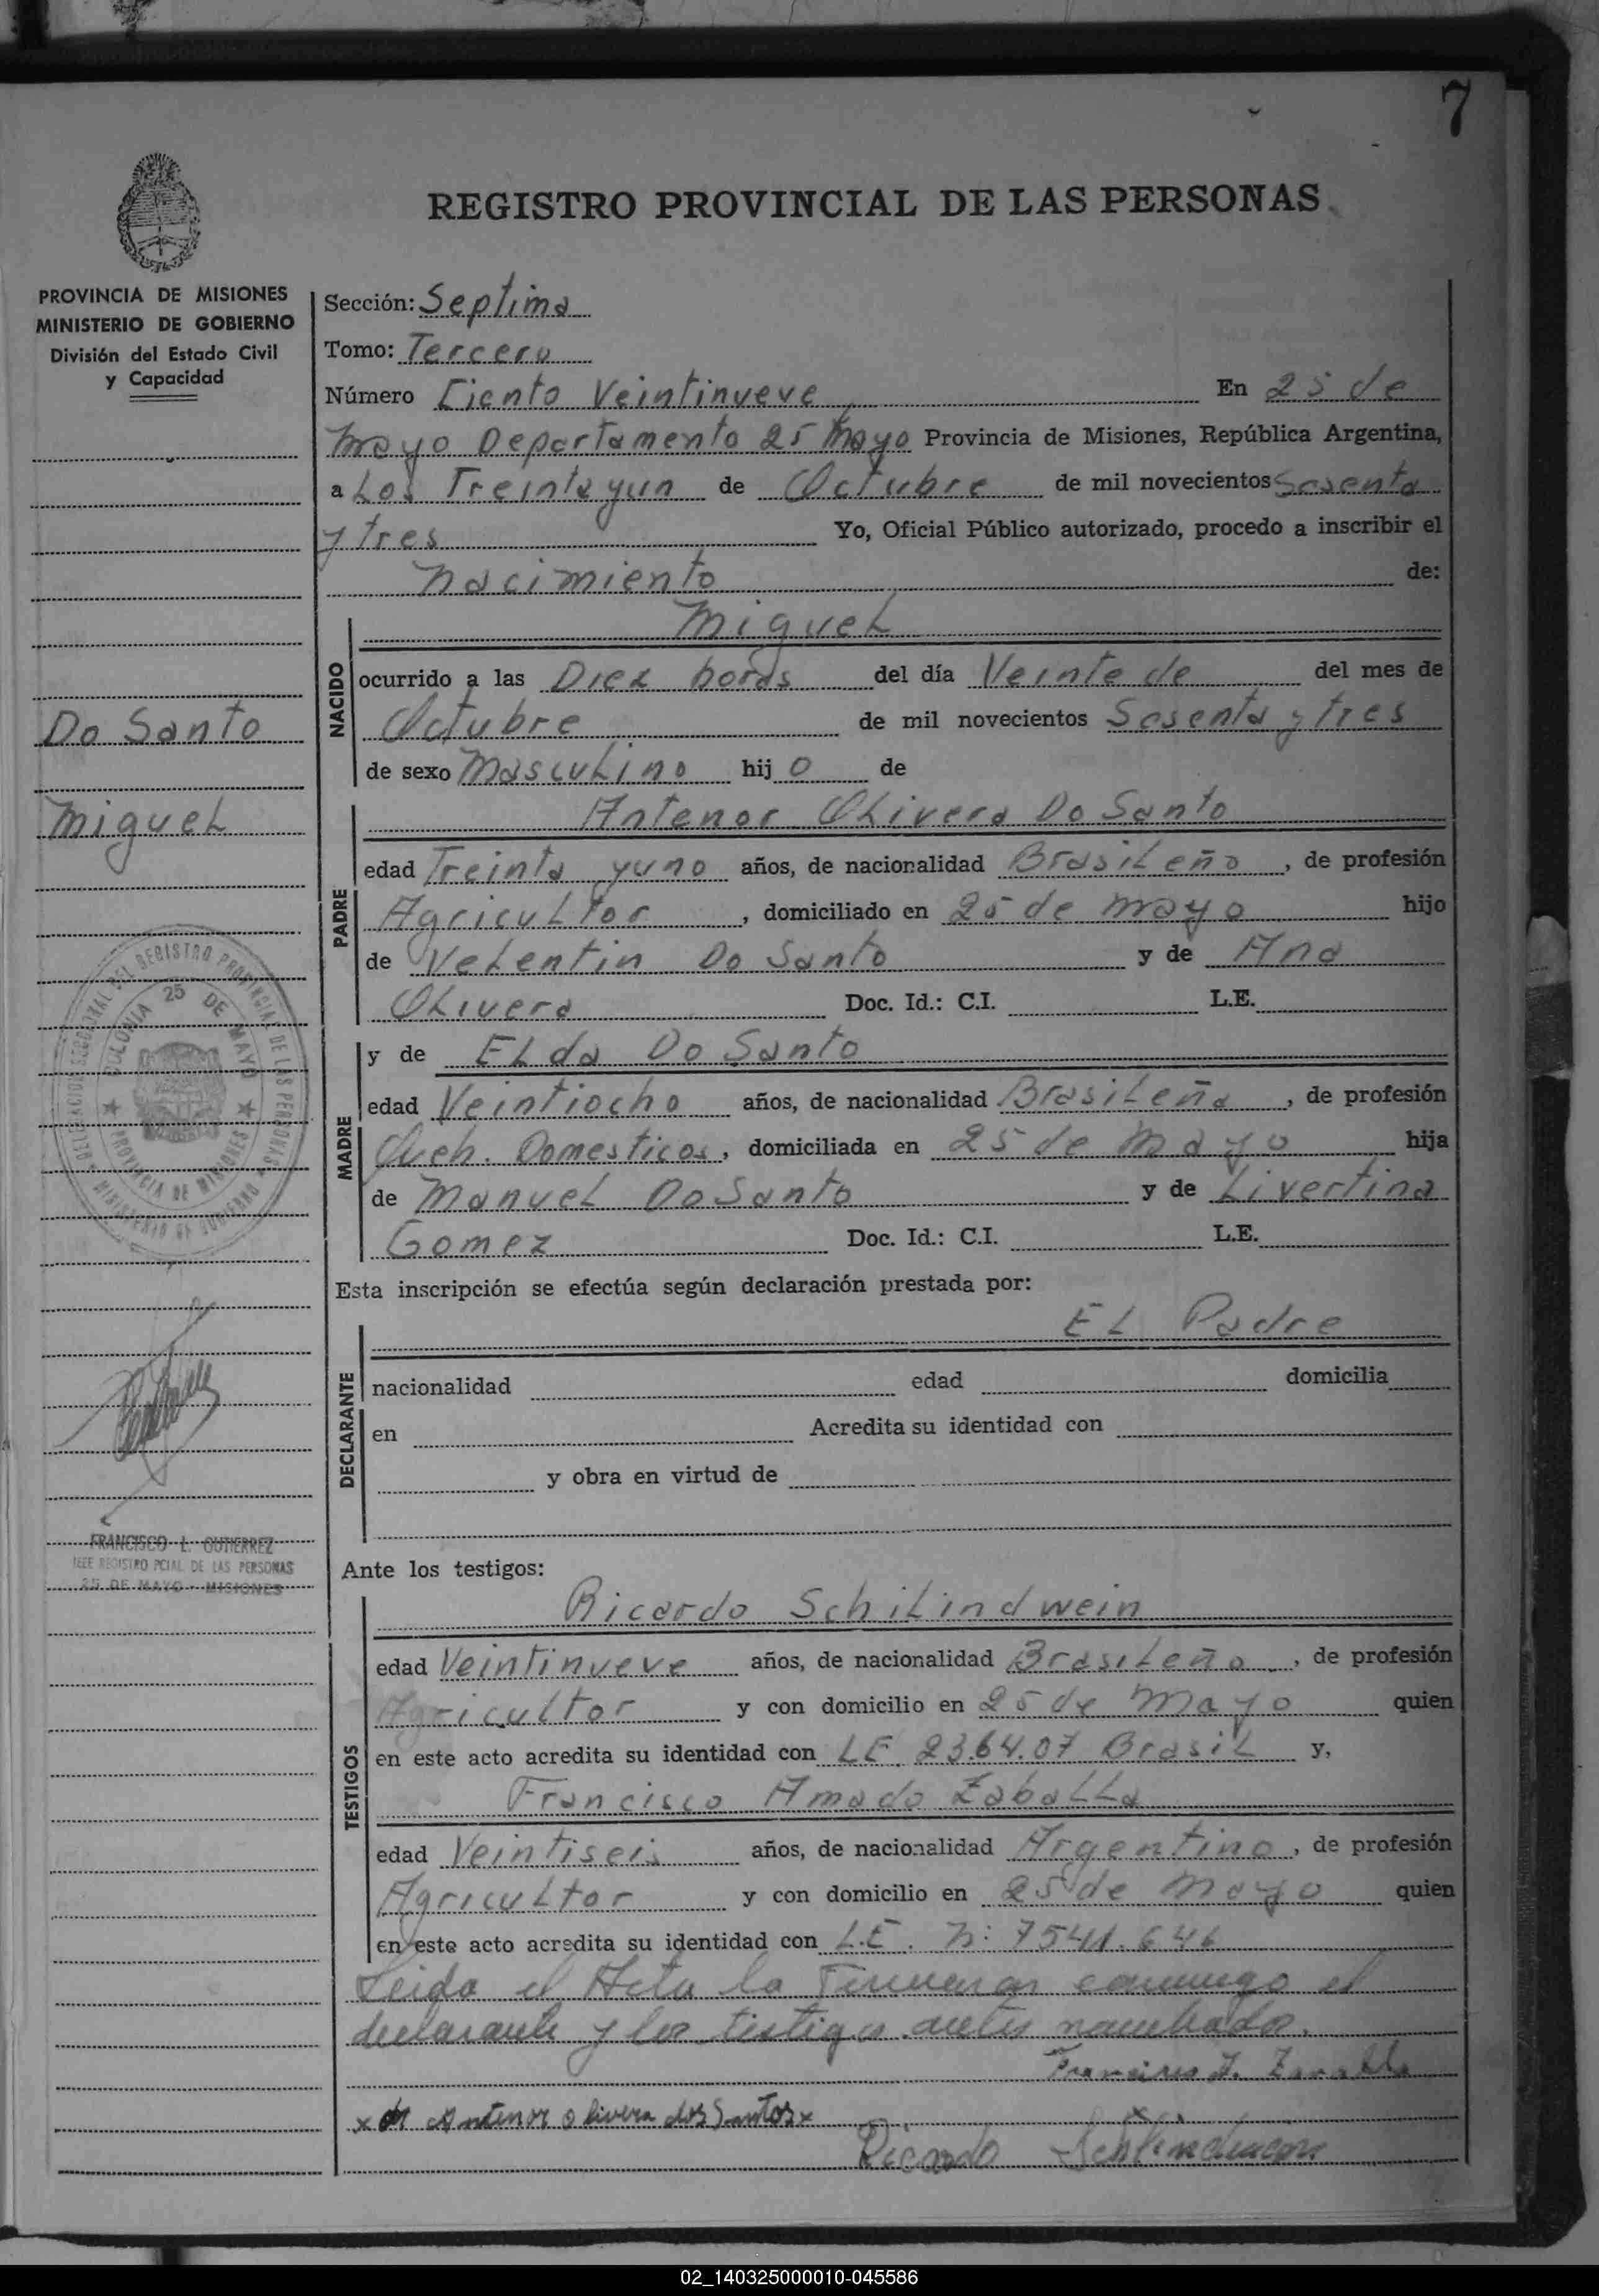 7
REGISTRO PROVINCIAL DE LAS PERSONAS
PROVINCIA DE MISIONES
MINISTERIO DE GOBIERNO
División del Estado Civil
y Capacidad
Do Santo
Miguel
DELEGACION SECCIONAL DEL REGISTRO PROVINCIAL DE LAS PERSONAS
COLONIA 25 DE MAYO
PROVINCIA DE MISIONES
MINISTERIO DE GOBIERNO
FRANCISCO L. GUTIERREZ
JEFE REGISTRO PCIAL DE LAS PERSONAS
25 DE MAYO - MISIONES
Sección: Septima
Tomo: Tercero
Número Ciento Veintinueve En 25 de
Mayo Departamento 25 Mayo Provincia de Misiones, República Argentina,
a Los Treinta yun de Octubre de mil novecientos Sesenta
y tres Yo, Oficial Público autorizado, procedo a inscribir el
Nacimiento de:
NACIDO
Miguel
ocurrido a las Diez horas del día Veinte de del mes de
Octubre de mil novecientos Sesenta y tres
de sexo Masculino hijo de
PADRE
Antenor Olivera Do Santo
edad Treinta yuno años, de nacionalidad Brasileño, de profesión
Agricultor, domiciliado en 25 de mayo hijo
de Velentin Do Santo y de Ana
Olivera Doc. Id.: C.I. L.E.
MADRE
y de Elda Do Santo
edad Veintiocho años, de nacionalidad Brasileña, de profesión
Queh. Domesticos, domiciliada en 25 de Mayo hija
de Manuel Do Santo y de Livertina
Gomez Doc. Id.: C.I. L.E.
Esta inscripción se efectúa según declaración prestada por:
DECLARANTE
El Padre
nacionalidad edad domicilia
en Acredita su identidad con
y obra en virtud de
Ante los testigos:
TESTIGOS
Ricardo Schilindwein
edad Veintinueve años, de nacionalidad Brasileño, de profesión
Agricultor y con domicilio en 25 de Mayo quien
en este acto acredita su identidad con LE 23.64.07 Brasil y,
Francisco Amado Zaballa
edad Veintiseis años, de nacionalidad Argentino, de profesión
Agricultor y con domicilio en 25 de Mayo quien
en este acto acredita su identidad con L.E. N: 7541.646
Leida el Acta la Firmaron conmigo el
declarante y los testigos antes nombrados.
Antenor olivera dos Santos x
Ricardo
02_140325000010-045586